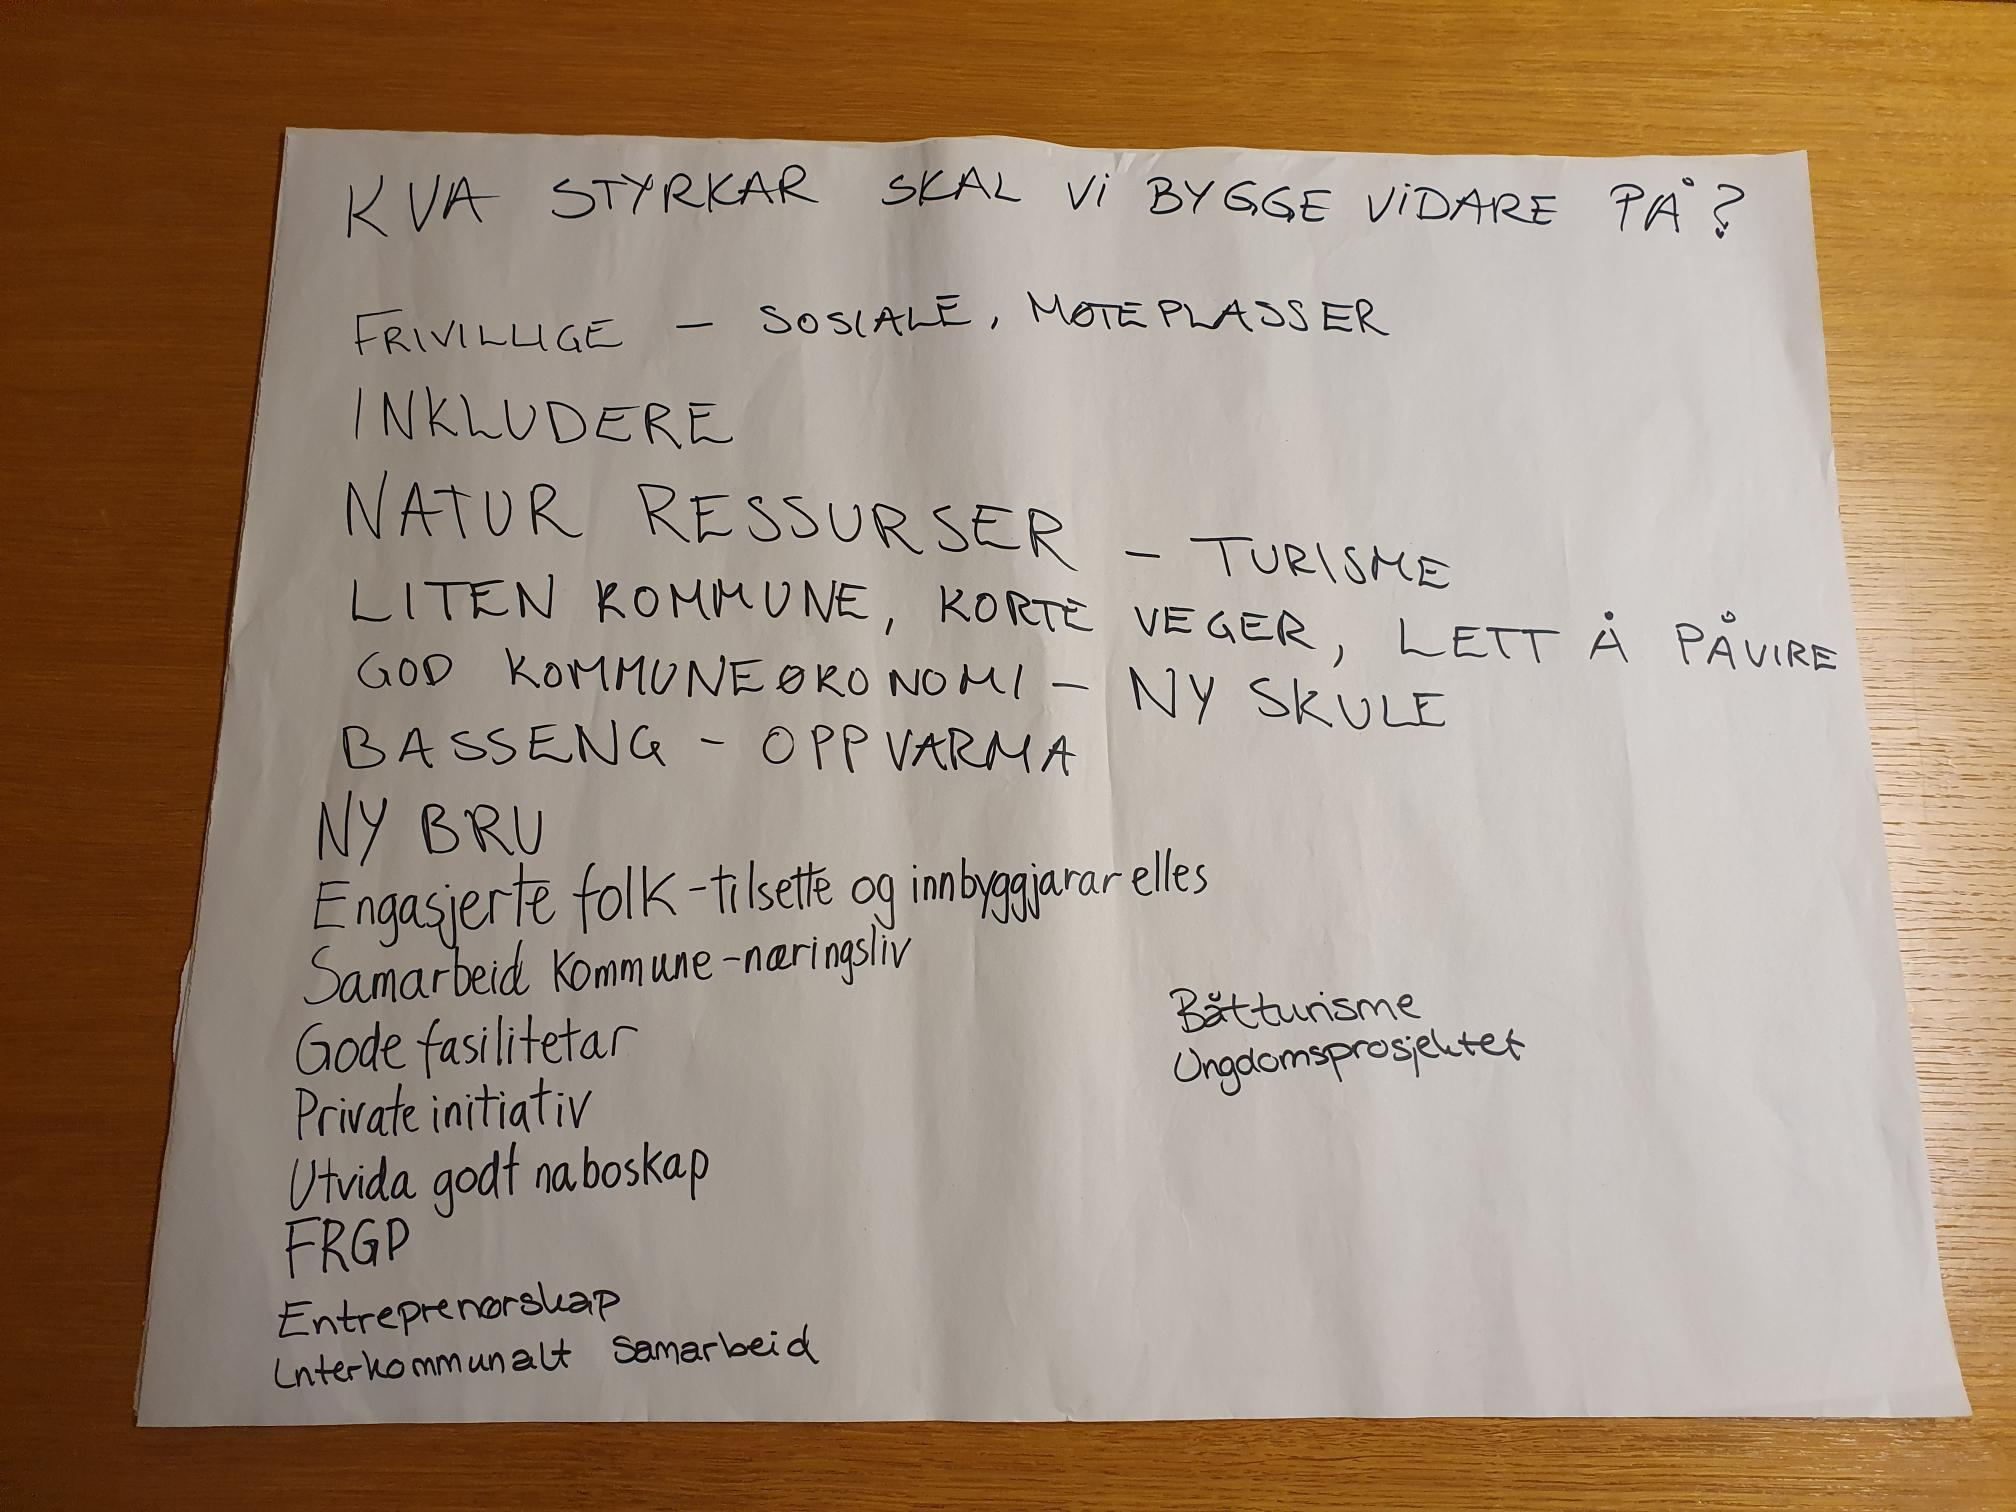 KVA STYRKAR SKAL Vi BYGGE ViDARE PÅ?
FRIVILLIGE - SOSIALE, MØTEPLASSER
INKLUDERE
NATUR RESSURSER - TURISME
LITEN KOMMUNE, KORTE VEGER, LETT Å PÅVIRE
GOD KOMMUNEØKONOMI - NY SKULE
BASSENG - OPPVARMA
NY BRU
Engasjerte folk - tilsette og innbyggjarar elles
Samarbeid kommune - næringsliv
Gode fasilitetar
Private initiativ
Utvida godt naboskap
FRGP
Entreprenørskap
Interkommunalt samarbeid
Båtturisme
Ungdomsprosjektet